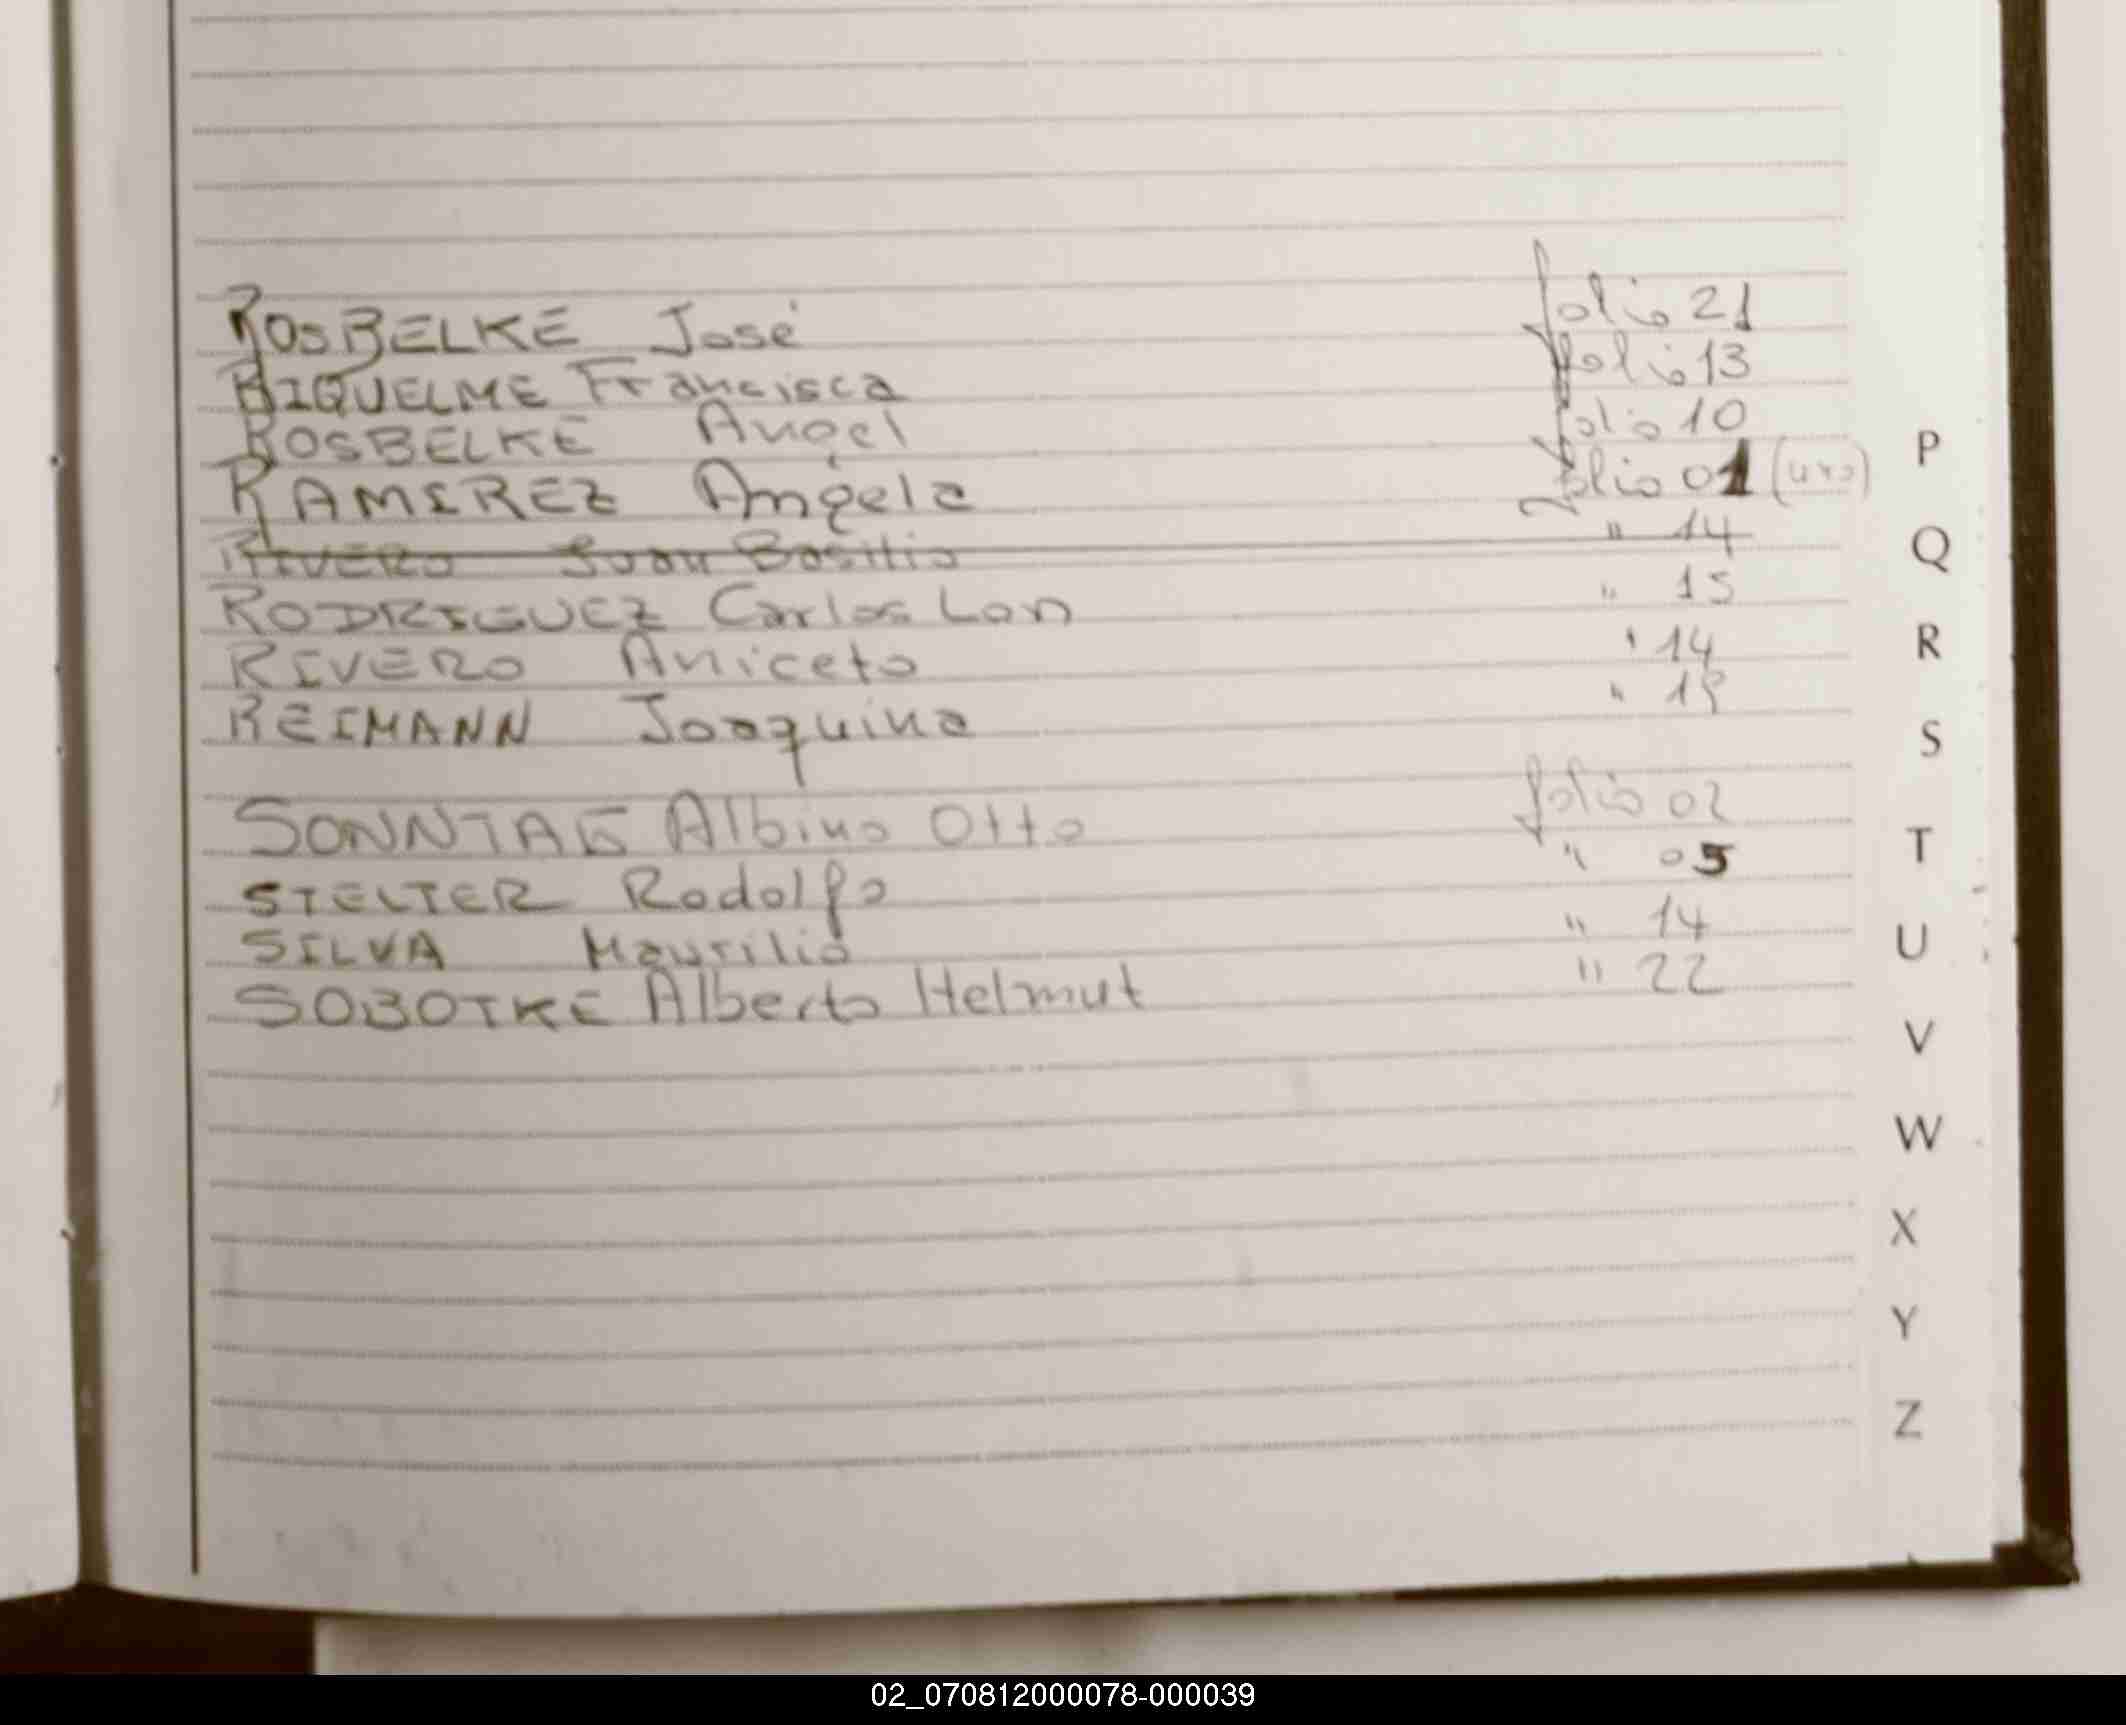 ROSBELKE José folio 21
RIQUELME Francisca folio 13
ROSBELKE Angel folio 10
RAMIREZ Angela folio 01 (uno)
RIVERO Juan Basilio " 14
RODRIGUEZ Carlos Lon " 15
RIVERO Aniceto " 14
REIMANN Joaquina "
SONNTAG Albino Otto folio 02
STELTER Rodolfo " 05
SILVA Maurilio " 14
SOBOTKE Alberto Helmut " 22
P
Q
R
S
T
U
V
W
X
Y
Z
02_070812000078-000039